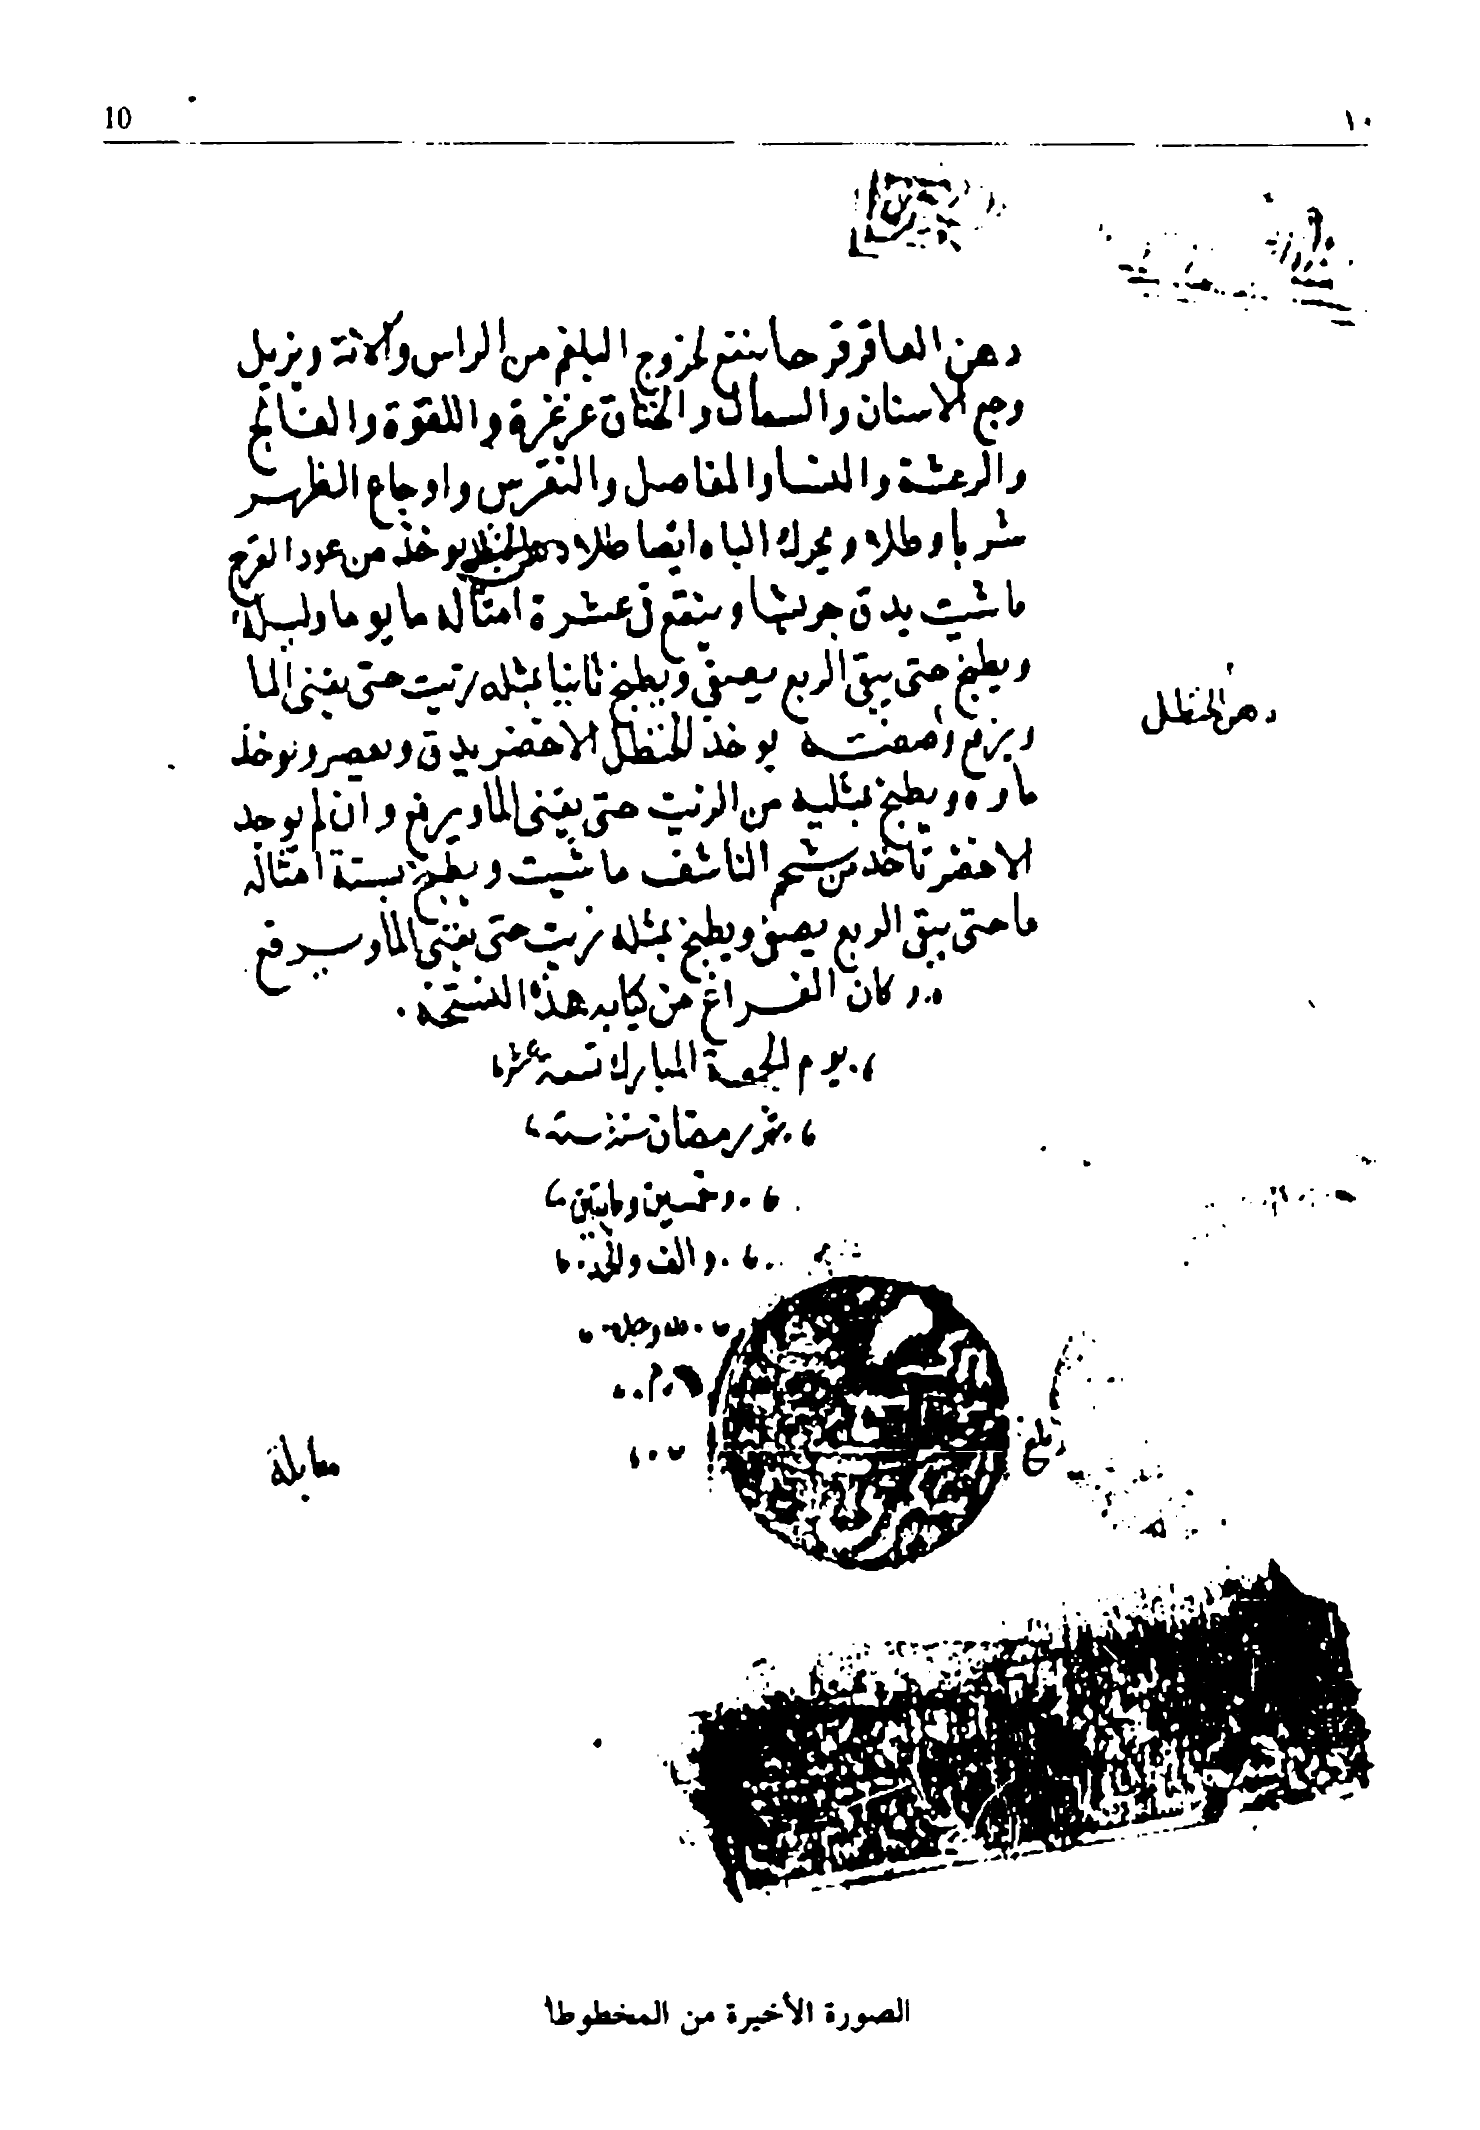 10
١٠
دهن العاقر قرحا ينفع لخروج البلغم من الراس والاته ويزيل
وجع الاسنان والسعال والخناق غرغرة واللقوة والفالج
والرعشة والنسا والمفاصل والنقرس واوجاع الظهر
شربا وطلاء ويحرك الباه ايضا طلاء دهن الحنظل يوخذ من عود القرح
ما شيت يدق جريشا وينقع في عشرة امثاله ما يوما وليلة
ويطبخ حتى يبقى الربع يصفى ويطبخ ثانيا بمثله زيت حتى يفنى الما
ويرفع يوخذ الحنظل الاخضر يدق ويعصر ويوخذ
ماوه ويطبخ بمثليه من الزيت حتى يفنى الما ويرفع وان لم يوجد
الاخضر تاخذ من شحم الناشف ما شيت ويطبخ بستة امثاله
ما حتى يبقى الربع يصفى ويطبخ بمثله زيت حتى يفنى الما ويرفع
دهن الحنظل
وكان الفراغ من كتابه هذه النسخة
يوم الجمعة المبارك تسعة عشر
شهر رمضان سنة ستة
وخمسين ومايتين
والف والحمد
لله وحده
م
بلغ
مقابلة
الصورة الأخيرة من المخطوطا